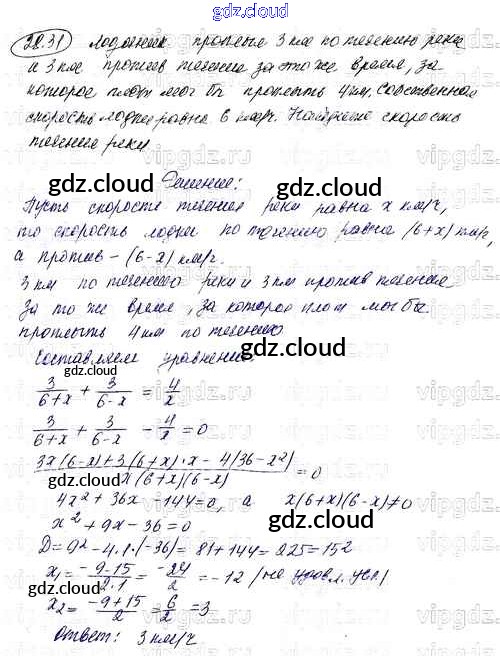 gdz.cloud
28.31 Лодочник проплыл 3 км по течению реки
и 3 км против течения за то же время, за
которое плот мог бы проплыть 4 км. Собственная
скорость лодки равна 6 км/ч. Найдите скорость
течения реки.
gdz.cloud
Решение:
Пусть скорость течения реки равна x км/ч,
то скорость лодки по течению равна (6+x) км/ч,
а против – (6-x) км/ч.
gdz.cloud
3 км по течению реки и 3 км против течения
за то же время, за которое плот мог бы
проплыть 4 км по течению
Составляем уравнение:
gdz.cloud
3/(6+x) + 3/(6-x) = 4/x
3/(6+x) + 3/(6-x) - 4/x = 0
gdz.cloud
(3x(6-x)+3(6+x)·x-4(36-x²))/(x(6+x)(6-x)) = 0
4x²+36x-144=0, а x(6+x)(6-x)≠0
x²+9x-36=0
gdz.cloud
D=9²-4·1·(-36)=81+144=225=15²
x₁=(-9-15)/(2·1)=-24/2=-12 (не удовл. усл.)
x₂=(-9+15)/2=6/2=3
Ответ: 3 км/ч
gdz.cloud